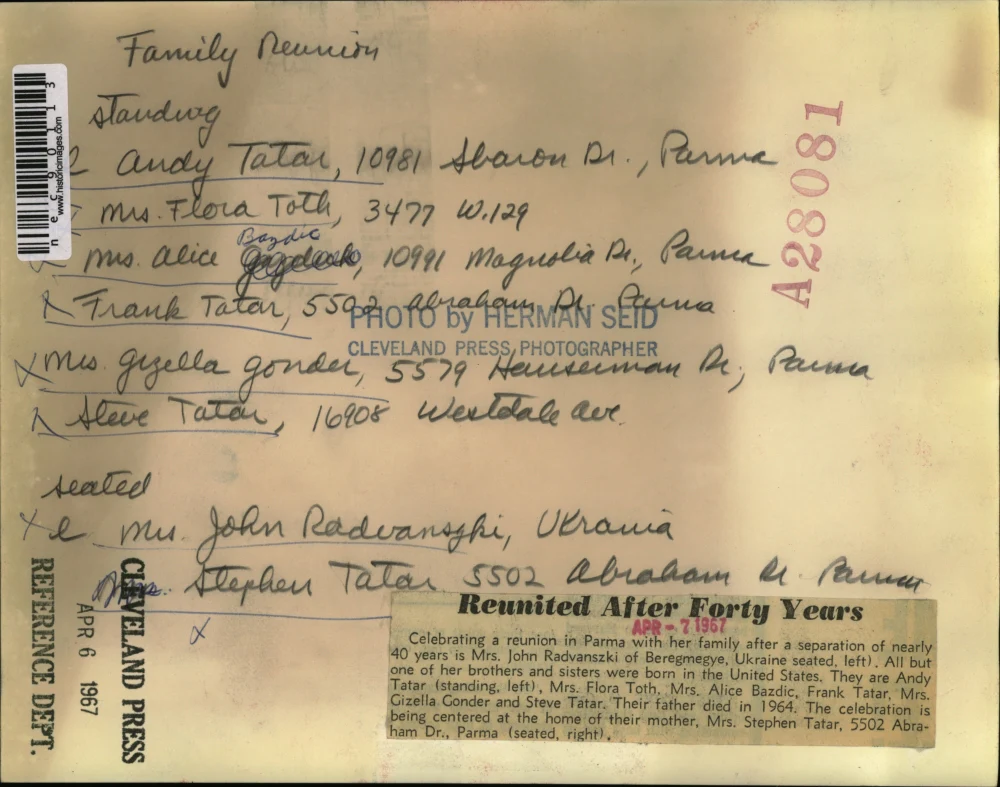 Family Reunion
standing
l Andy Tatar, 10981 Sharon Dr., Parma
Mrs. Flora Toth, 3477 W. 129
Bazdic
Mrs. Alice, 10991 Magnolia Dr., Parma
X Frank Tatar, 5502 Abraham Dr. Parma
PHOTO by HERMAN SEID
CLEVELAND PRESS PHOTOGRAPHER
X Mrs. Gizella Gonder, 5579 Hauserman Dr., Parma
X Steve Tatar, 16908 Westdale Ave.
seated
X l Mrs. John Radvanszki, Ukrania
Mrs. Stephen Tatar 5502 Abraham Dr. Parma
X
Reunited After Forty Years
APR - 7 1967
Celebrating a reunion in Parma with her family after a separation of nearly
40 years is Mrs. John Radvanszki of Beregmegye, Ukraine seated, left). All but
one of her brothers and sisters were born in the United States. They are Andy
Tatar (standing, left), Mrs. Flora Toth, Mrs. Alice Bazdic, Frank Tatar, Mrs.
Gizella Gonder and Steve Tatar. Their father died in 1964. The celebration is
being centered at the home of their mother, Mrs. Stephen Tatar, 5502 Abra-
ham Dr., Parma (seated, right).
CLEVELAND PRESS
APR 6 1967
REFERENCE DEPT.
A28081
www.historicimages.com
nec90113